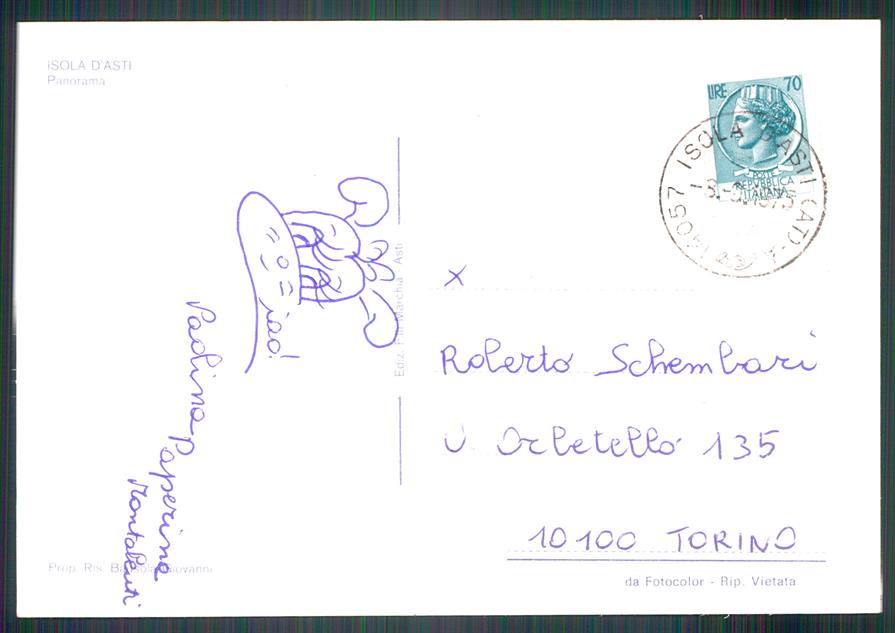 ISOLA D'ASTI
Panorama
LIRE 70
POSTE
REPVBBLICA
ITALIANA
14057 ISOLA D'ASTI (AT)
Ciao!
Paolina
Paperina
Montalenti
Ediz. F.lli Marchia - Asti
x
Roberto Schembari
V. Orbetello 135
10100 TORINO
Prop. Ris. Giovanni
da Fotocolor - Rip. Vietata